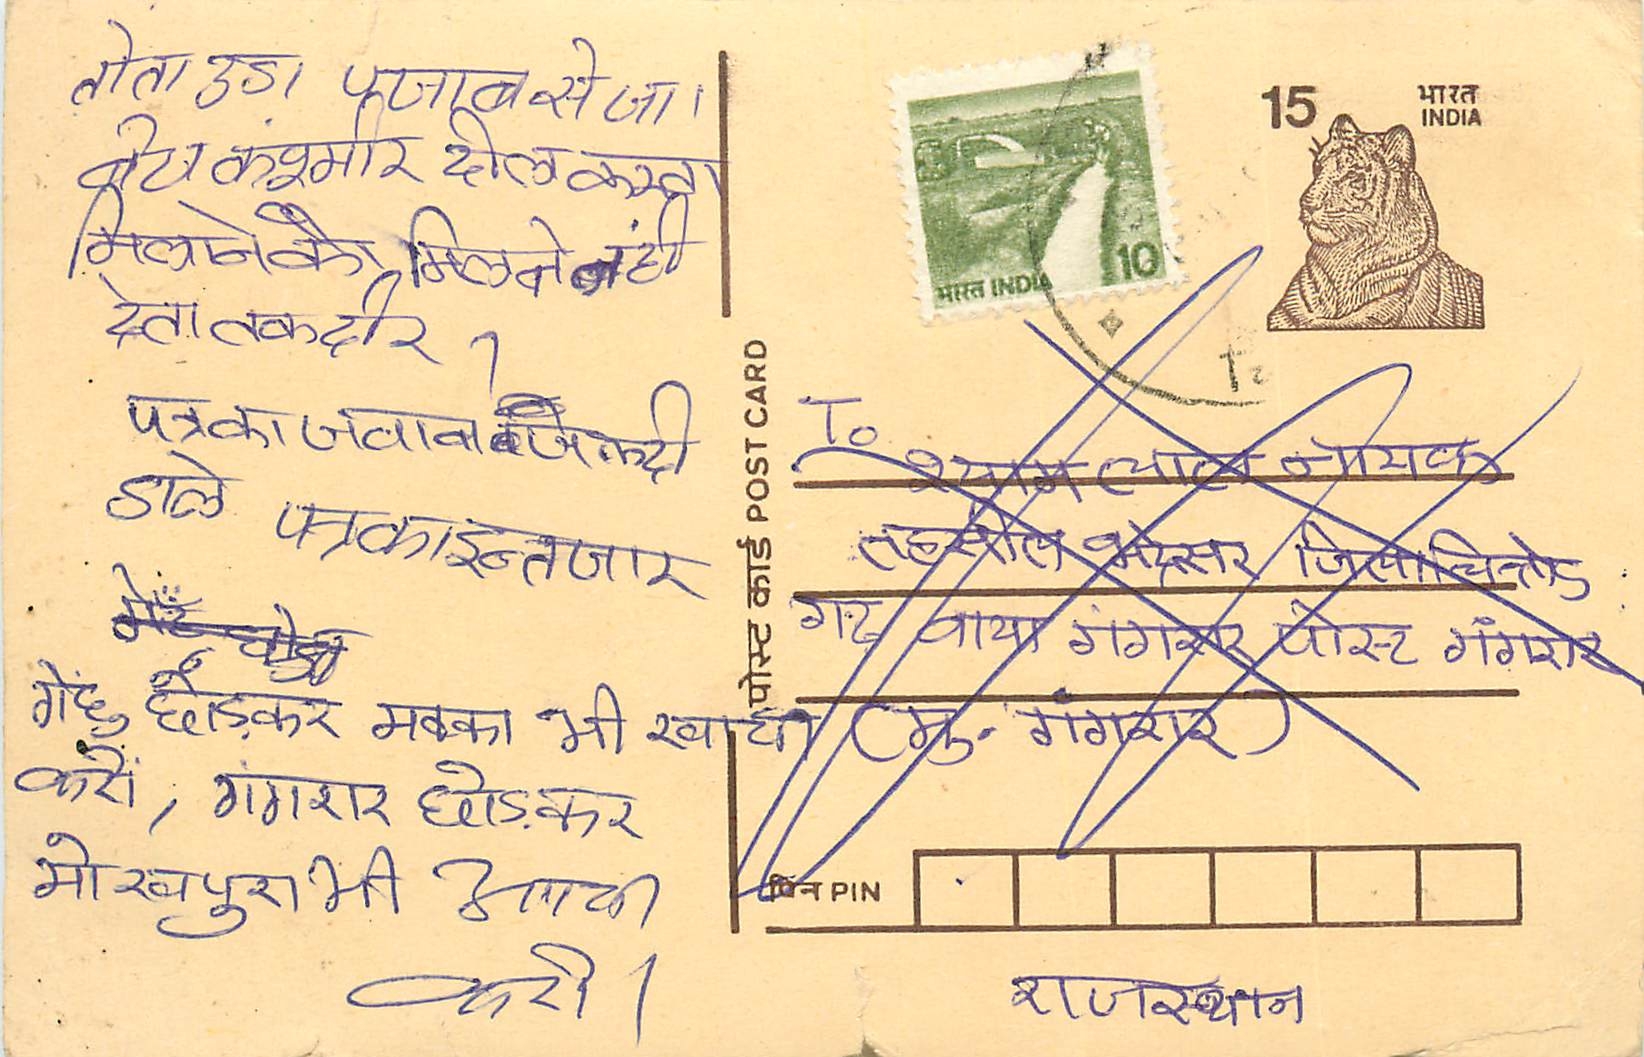 तोता उडा पंजाब से जा।
बेठा कश्मीर दील करता
मिलने को मिलने नंही
देता तकदीर ।
पत्र का जवाब जलदी
डाले पत्र का इन्तजार
गेंहु छोड़कर मक्का भी खाया
करों, गंगरार छोड़कर
मोखमपुरा भी आया
करो।
पोस्ट कार्ड POST CARD
भारत INDIA 10
15 भारत
INDIA
To
श्याम लाल नायक
तहसील भदेसर जिला चित्तोड
गढ वाया गंगरार पोस्ट गंगरार
(मु. गंगरार)
पिन PIN
राजस्थान